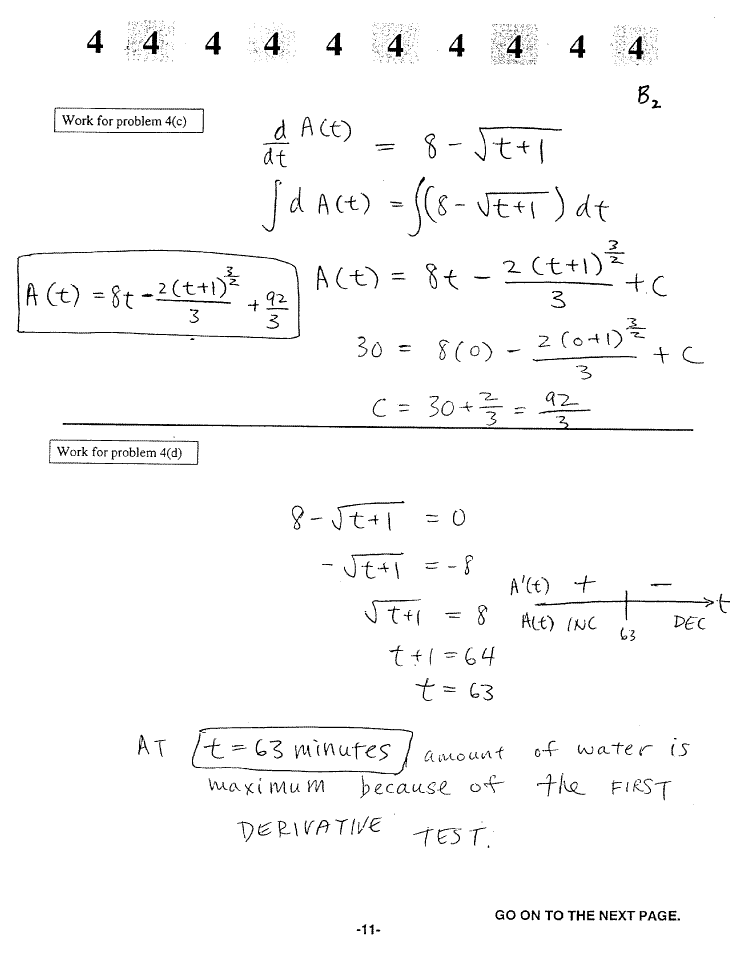 4 4 4 4 4 4 4 4 4 4
B₂
Work for problem 4(c)
d/dt A(t) = 8 - √(t+1)
∫ d A(t) = ∫(8 - √(t+1)) dt
A(t) = 8t - 2(t+1)^(3/2)/3 + C
A(t) = 8t - 2(t+1)^(3/2)/3 + 92/3
30 = 8(0) - 2(0+1)^(3/2)/3 + C
C = 30 + 2/3 = 92/3
Work for problem 4(d)
8 - √(t+1) = 0
- √(t+1) = -8
√(t+1) = 8
t+1 = 64
t = 63
A'(t) + -
t
A(t) INC 63 DEC
AT t = 63 minutes, amount of water is
maximum because of the FIRST
DERIVATIVE TEST.
GO ON TO THE NEXT PAGE.
-11-